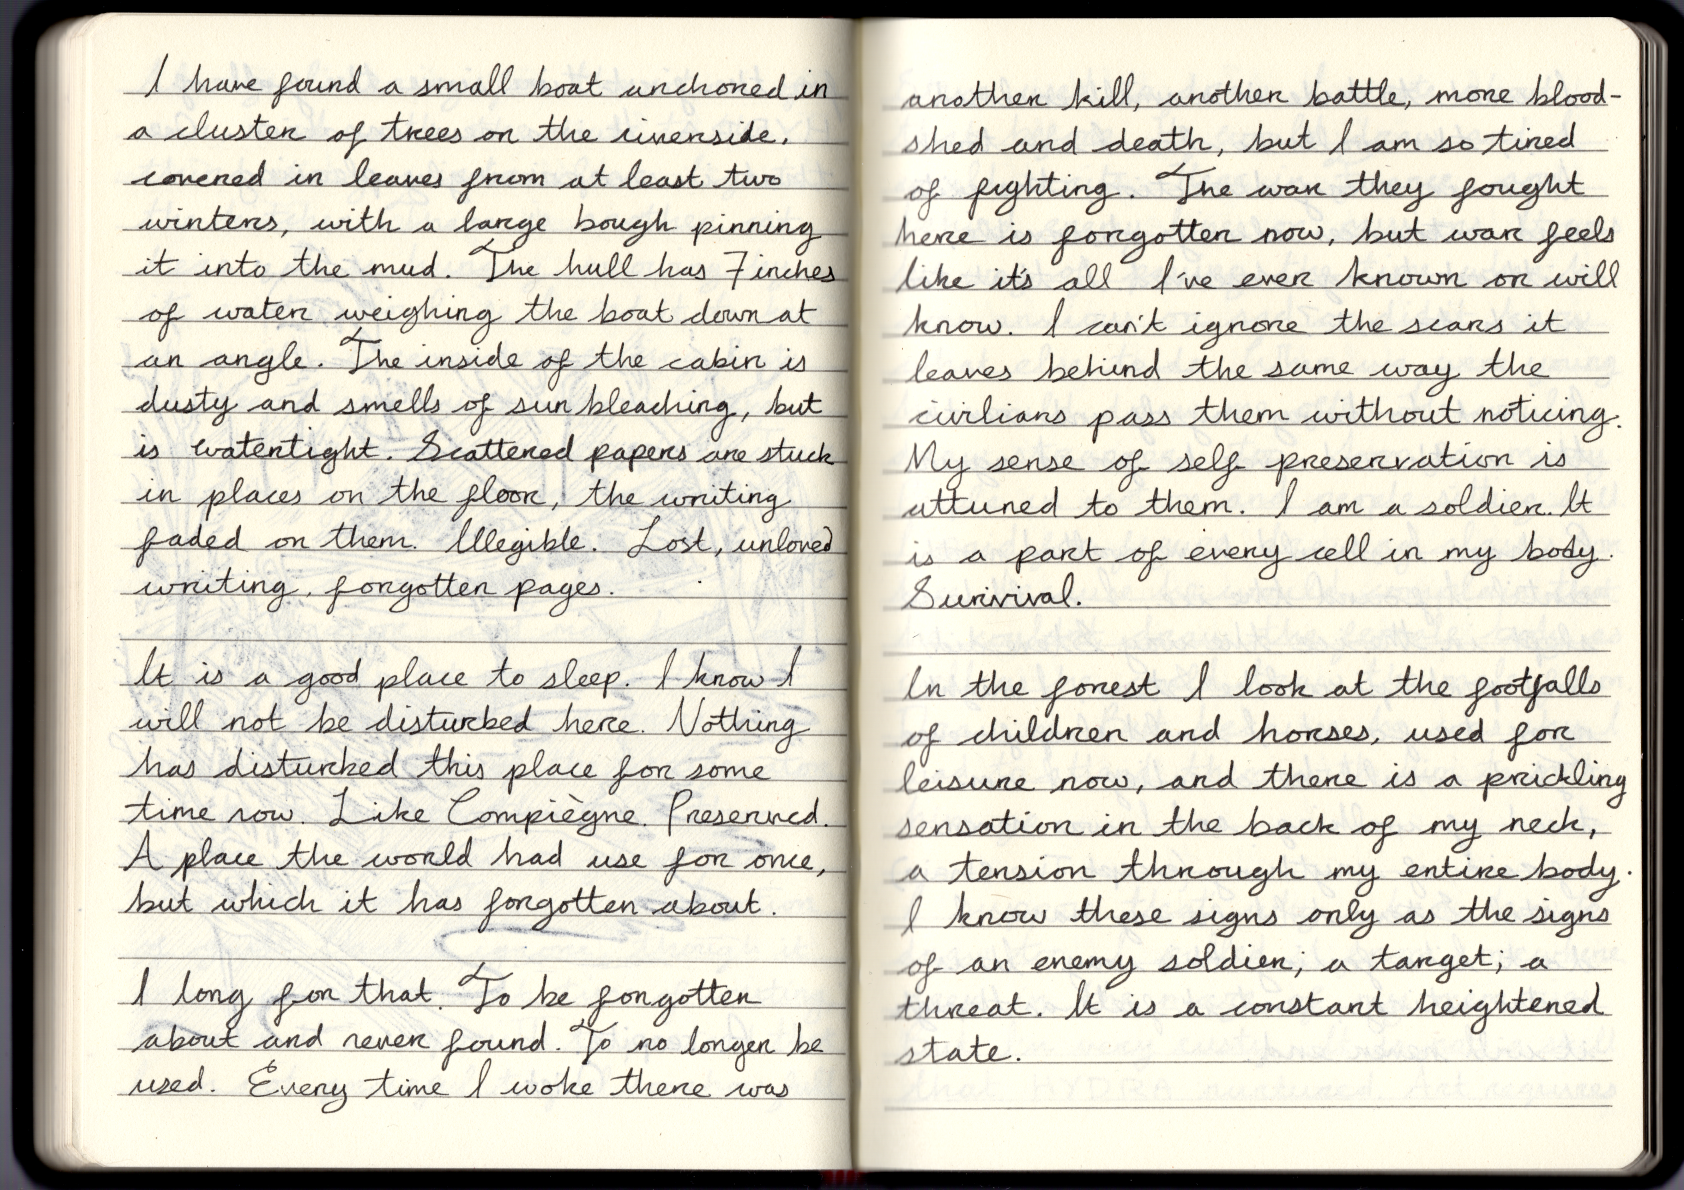 I have found a small boat anchored in
a cluster of trees on the riverside,
covered in leaves from at least two
winters, with a large bough pinning
it into the mud. The hull has 7 inches
of water weighing the boat down at
an angle. The inside of the cabin is
dusty and smells of sun bleaching, but
is watertight. Scattered papers are stuck
in places on the floor, the writing
faded on them. Illegible. Lost, unloved
writing, forgotten pages.
It is a good place to sleep. I know I
will not be disturbed here. Nothing
has disturbed this place for some
time now. Like Compiègne. Preserved.
A place the world had use for once,
but which it has forgotten about.
I long for that. To be forgotten
about and never found. To no longer be
used. Every time I woke there was
another kill, another battle, more blood-
shed and death, but I am so tired
of fighting. The war they fought
here is forgotten now, but war feels
like it's all I've ever known or will
know. I can't ignore the scars it
leaves behind the same way the
civilians pass them without noticing.
My sense of self preservation is
attuned to them. I am a soldier. It
is a part of every cell in my body.
Survival.
In the forest I look at the footfalls
of children and horses, used for
leisure now, and there is a prickling
sensation in the back of my neck,
a tension through my entire body.
I know these signs only as the signs
of an enemy soldier; a target; a
threat. It is a constant heightened
state.